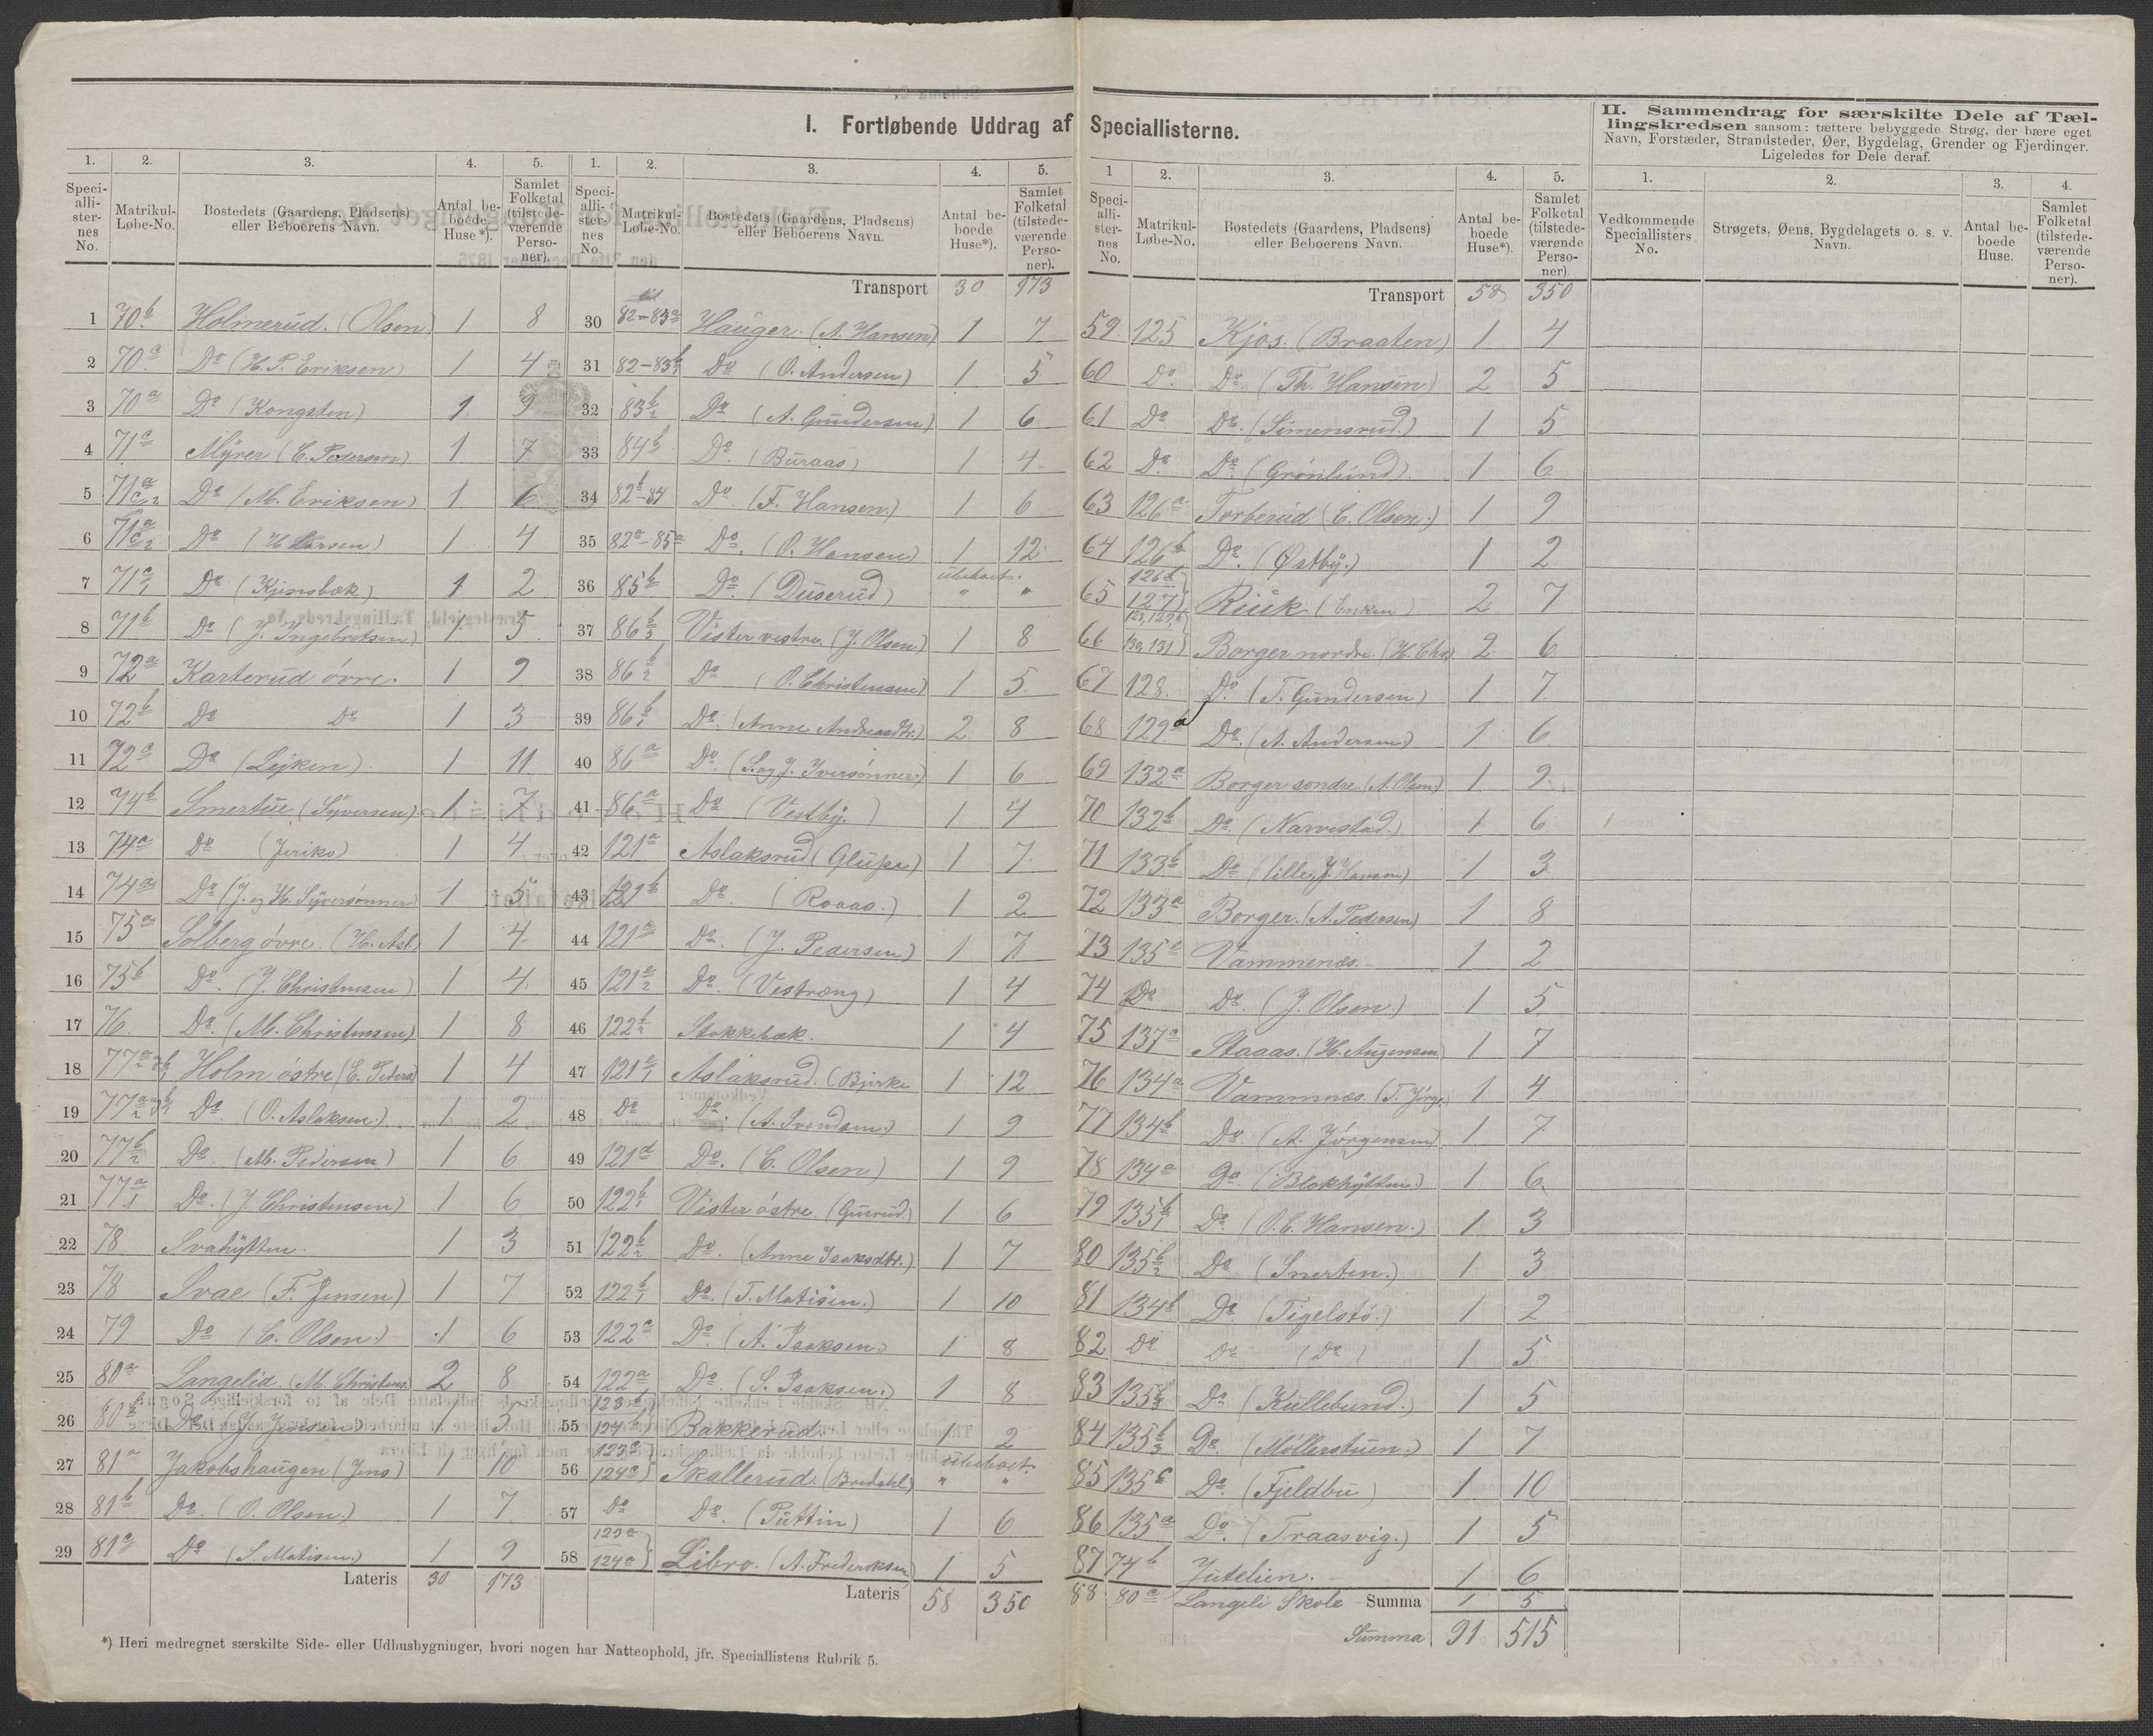 I. Fortløbende Uddrag af Speciallisterne.
II. Sammendrag for særskilte Dele af Tæl-
lingskredsen saasom: tættere bebyggede Strøg, der bære eget
Navn, Forstæder, Strandsteder, Øer, Bygdelag, Grender og Fjerdinger.
Ligeledes for Dele deraf.
1. 2. 3. 4. 5.
Speciallisternes No. Matrikul-Løbe-No. Bostedets (Gaardens, Pladsens) eller Beboerens Navn. Antal beboede Huse*). Samlet Folketal (tilstedeværende Personer).
1 70b Holmerud. (Olsen) 1 8
2 70a Do (H. P. Eriksen) 1 4
3 70a Do (Kongsten) 1 9
4 71c Myrer (C. Pedersen) 1 7
5 71 Do (M. Eriksen) 1 6
6 71 Do (H Larsen) 1 4
7 71 Do (Kjensbæk) 1 2
8 71b Do (J. Ingebritsen) 1 5
9 72a Karterud övre. 1 9
10 72b Do Do 1 3
11 72a Do (Lejken) 1 11
12 74b Smertue (Syversen) 1 7
13 74a Do (Jeriko) 1 4
14 74a Do (J. og H. Syversönner) 1 5
15 75a Solberg övre. (H. Asl.) 1 4
16 75b Do. (J. Christensen) 1 4
17 76 Do. (M. Christensen) 1 8
18 77a Holm östre (E. Peders) 1 4
19 77a Do. (O. Aslaksen.) 1 2
20 77b Do (M. Pedersen) 1 6
21 77a Do. (J. Christensen) 1 6
22 78 Svahytten. 1 3
23 78 Svae (F. Jensen) 1 7
24 79 Do (C. Olsen) 1 6
25 80a Langelid (M. Christens) 2 8
26 80b Do (J. Jensen) 1 5
27 81a Jakobshaugen (Jens) 1 10
28 81b Do. (O. Olsen.) 1 7
29 81a Do (S. Matisen.) 1 9
Lateris 30 173
*) Heri medregnet særskilte Side- eller Udhusbygninger, hvori nogen har Natteophold, jfr. Speciallistens Rubrik 5.
1. 2. 3. 4. 5.
Speciallisternes No. Matrikul-Løbe-No. Bostedets (Gaardens, Pladsens) eller Beboerens Navn. Antal beboede Huse*). Samlet Folketal (tilstedeværende Personer).
Transport 30 173
30 82-83a Hauger. (A. Hansen) 1 7
31 82-83b Do (O. Andersen) 1 5
32 83b Do (A. Gundersen) 1 6
33 84b Do. (Buraas) 1 4
34 82b-84 Do. (F. Hansen.) 1 6
35 82a-85a Do. (O. Hansen) 1 12
36 85b Do. (Duserud) ubeboet. " "
37 86b Vister vestre. (J. Olsen) 1 8
38 86b Do (O. Christensen) 1 5
39 86b Do. (Anne Andreasdtr.) 2 8
40 86a Do. (S. og J. Iversönner.) 1 6
41 86a Do (Vestby.) 1 4
42 121a Aslaksrud (Glupe) 1 7
43 121b Do. (Roaas.) 1 2
44 121a Do. (J. Pedersen) 1 7
45 121a Do. (Vestræng) 1 4
46 122b Stokkebæk. 1 4
47 121a Aslaksrud. (Bjerke 1 12
48 Do Do. (A. Svendsen.) 1 9
49 121d Do. (C. Olsen) 1 9
50 122b Vister östre (Gusrud.) 1 6
51 122b Do. (Anne Isaksdtr.) 1 7
52 122b Do. (T. Matisen.) 1 10
53 122a Do. (A. Isaksen.) 1 8
54 122a Do. (S. Isaksen.) 1 8
55 123b 124b Bakkerud. 1 2
56 123a 124a Skallerud. (Bredahl) ubeboet. " "
57 Do Do. (Puttin) 1 6
58 123a 124a Libro. (A. Frederiksen) 1 5
Lateris 58 350
1 2. 3. 4. 5.
Speciallisternes No. Matrikul-Løbe-No. Bostedets (Gaardens, Pladsens) eller Beboerens Navn. Antal beboede Huse*). Samlet Folketal (tilstedeværende Personer).
Transport 58 350
59. 125 Kjos. (Braaten) 1 4
60 Do. Do. (Th. Hansen) 2 5
61 Do Do. (Simensrud.) 1 5
62 Do. Do. (Grönlund) 1 6
63 126a Torberud (C. Olsen.) 1 9
64 126b Do. (Østby.) 1 2
65 126b 127 Riuk 2 7
66 130, 131 Borger nordre. (H. Chr) 2 6
67 128. Do (T. Gundersen) 1 7
68 129b Do. (A. Andersen) 1 6
69 132a Borger söndre (A. Olsen) 1 9
70 132b Do. (Narvestad.) 1 6
71 133b Do (lille, J. Hansen) 1 3
72 133a Borger. (A. Pedersen) 1 8
73 135a Vammenæs. 1 2
74 Do Do. (J. Olsen.) 1 5
75 137a Staaas. (H. Augensen) 1 7
76 134a Vammnæs. (T. Jörg.) 1 4
77 134b Do (A. Jörgensen) 1 7
78 134a Do. (Blokhytten.) 1 6
79 135b Do. (O. C. Hansen.) 1 3
80 135b Do (Snerten.) 1 3
81 134b Do (Tigelstö.) 1 2
82 Do Do (Do) 1 5
83 135b Do (Kullebund.) 1 5
84 135b Do. (Möllerstuen.) 1 7
85 135c Do. (Fjeldbu) 1 10
86 135a Do. (Traasvig.) 1 5
87 74b Jutelien. 1 6
88 80a Langeli Skole Summa 1 5
Summa 91 515
1. 2. 3. 4.
Vedkommende Speciallisters No. Strøgets, Øens, Bygdelagets o. s. v. Navn. Antal beboede Huse. Samlet Folketal (tilstedeværende Personer).